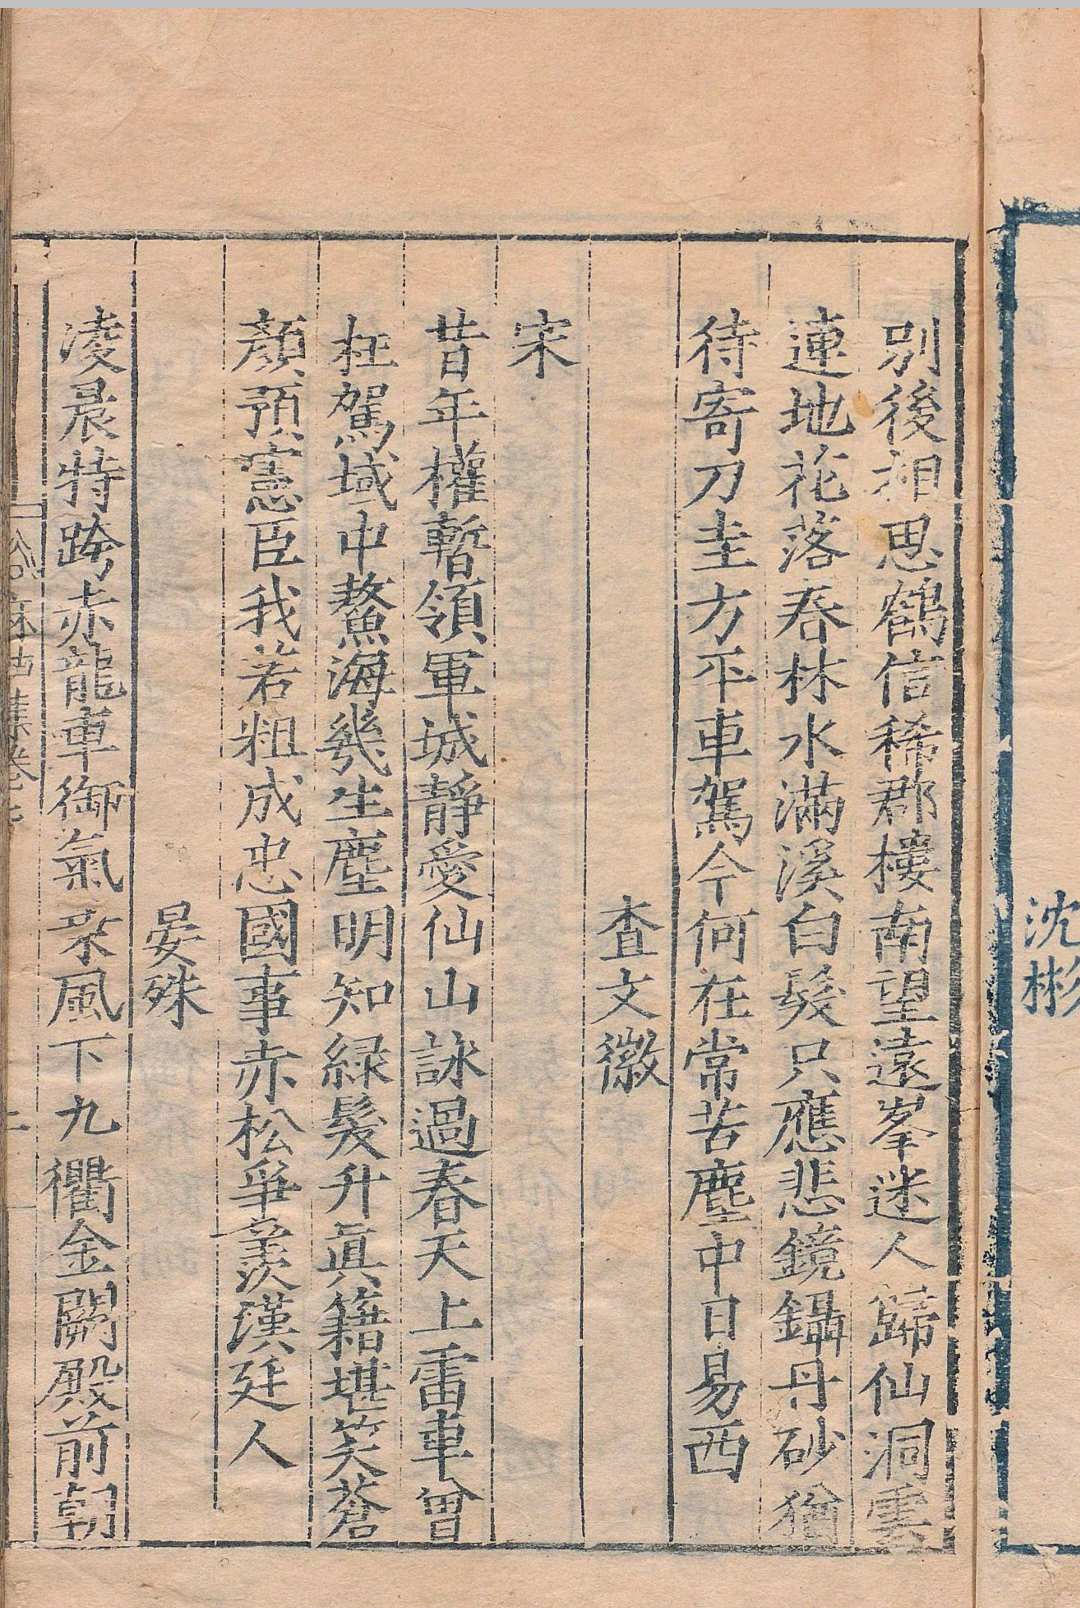 沈彬
別後相思鶴信稀郡樓南望遠峯迷人歸仙洞雲
連地花落春林水滿溪白髮只應悲鏡鑷丹砂猶
待寄刀圭方平車駕今何在常苦塵中日易西
查文徽
宋
昔年權暫領軍城靜愛仙山詠過春天上雷車曾
枉駕域中鰲海幾生塵明知綠髮升眞籍堪笑蒼
顏預憲臣我若粗成忠國事赤松爭羨漢廷人
晏殊
凌晨特跨赤龍車御氣乘風下九衢金闕殿前朝
麻姑集卷